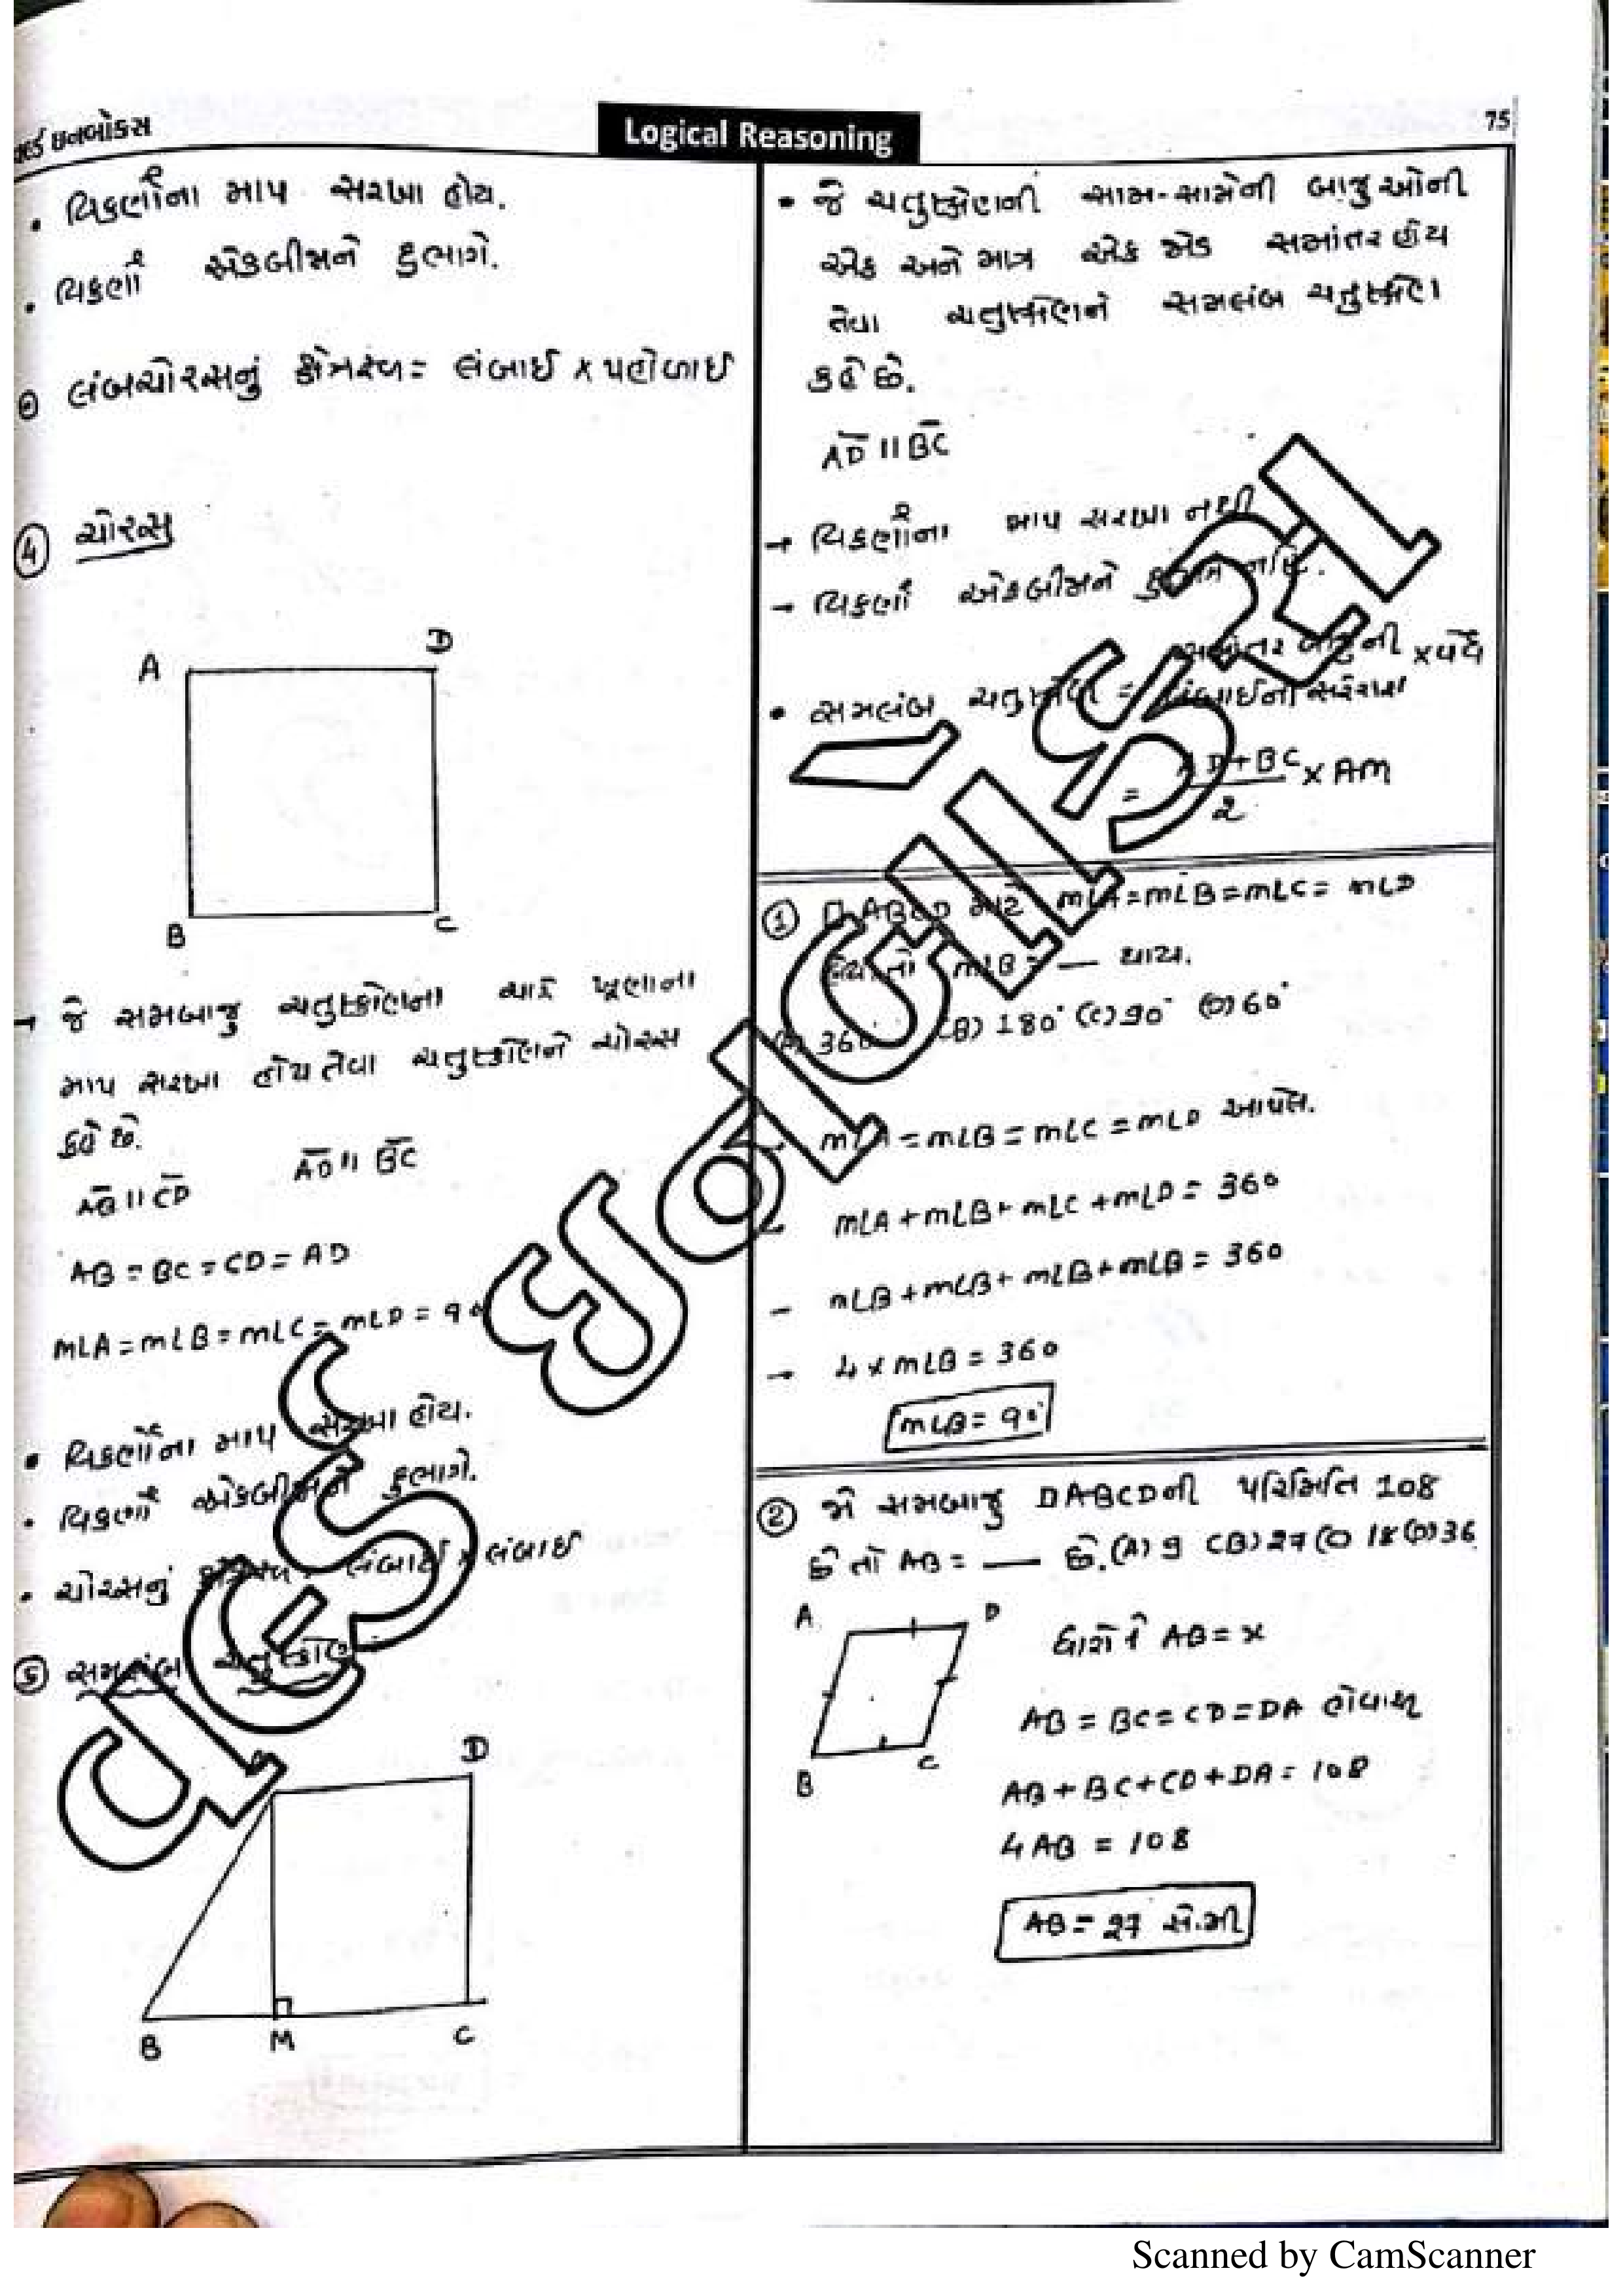 ઇનબોક્સ
Logical Reasoning
75
• વિકર્ણોના માપ સરખા હોય.
• વિકર્ણો એકબીજાને દુભાગે.
લંબચોરસનું ક્ષેત્રફળ = લંબાઈ x પહોળાઈ
④ ચોરસ
A D
B C
→ જે સમબાજુ ચતુષ્કોણના ચારે ખૂણાના
માપ સરખા હોય તેવા ચતુષ્કોણને ચોરસ
કહે છે.
AB || CD AD || BC
AB = BC = CD = AD
m∠A = m∠B = m∠C = m∠D = 90
• વિકર્ણોના માપ સરખા હોય.
• વિકર્ણો એકબીજાને દુભાગે.
• ચોરસનું લંબાઈ x લંબાઈ
⑤ સમલંબ ચતુષ્કોણ
D
B M C
• જે ચતુષ્કોણની સામ-સામેની બાજુઓની
એક અને માત્ર એક જોડ સમાંતર હોય
તેવા ચતુષ્કોણને સમલંબ ચતુષ્કોણ
કહે છે.
AD || BC
→ વિકર્ણોના માપ સરખા નથી
→ વિકર્ણો એકબીજાને નહિ.
સમાંતર બાજુની
• સમલંબ ચતુષ્કોણ = લંબાઈનો સરવાળો
= AD+BC x AM
2
① □ ABCD માટે m∠A = m∠B = m∠C = m∠D
હોય તો m∠B = — થાય.
(A) 360 (B) 180° (C) 90° (D) 60°
m∠A = m∠B = m∠C = m∠D આપેલ.
m∠A + m∠B + m∠C + m∠D = 360
– m∠B + m∠B + m∠B + m∠B = 360
→ 4 x m∠B = 360
m∠B = 90°
② જો સમબાજુ □ABCDની પરિમિતિ 108
છે તો AB = — છે. (A) 9 (B) 27 (C) 18 (D) 36
A D
B C
ધારો કે AB = x
AB = BC = CD = DA હોવાથી
AB + BC + CD + DA = 108
4 AB = 108
AB = 27 સે.મી
Scanned by CamScanner